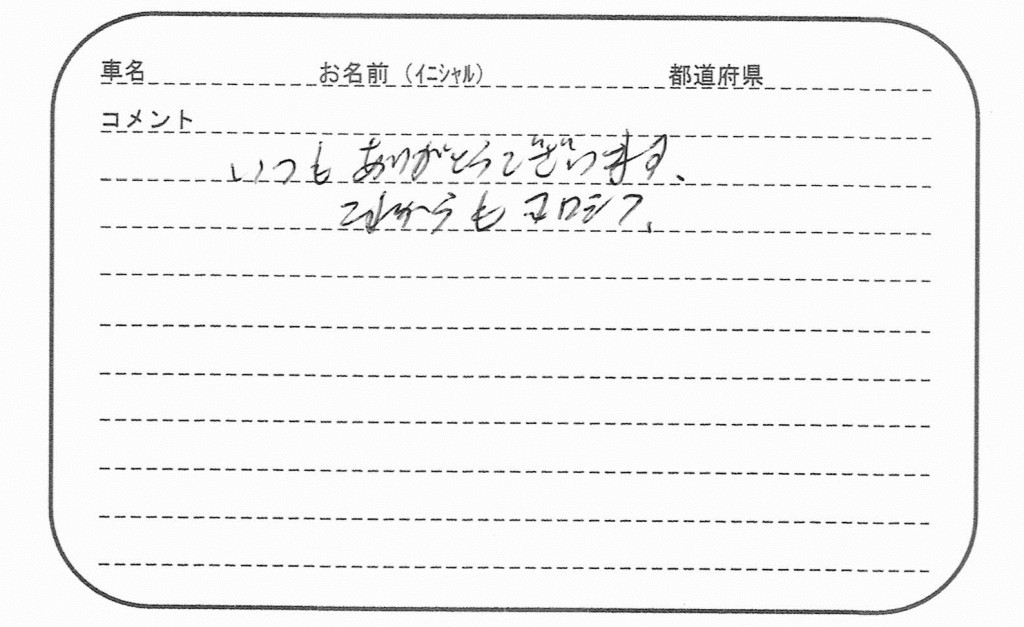 車名 お名前（ｲﾆｼｬﾙ） 都道府県
コメント
いつも ありがとうございます、
これからも ヨロシク、